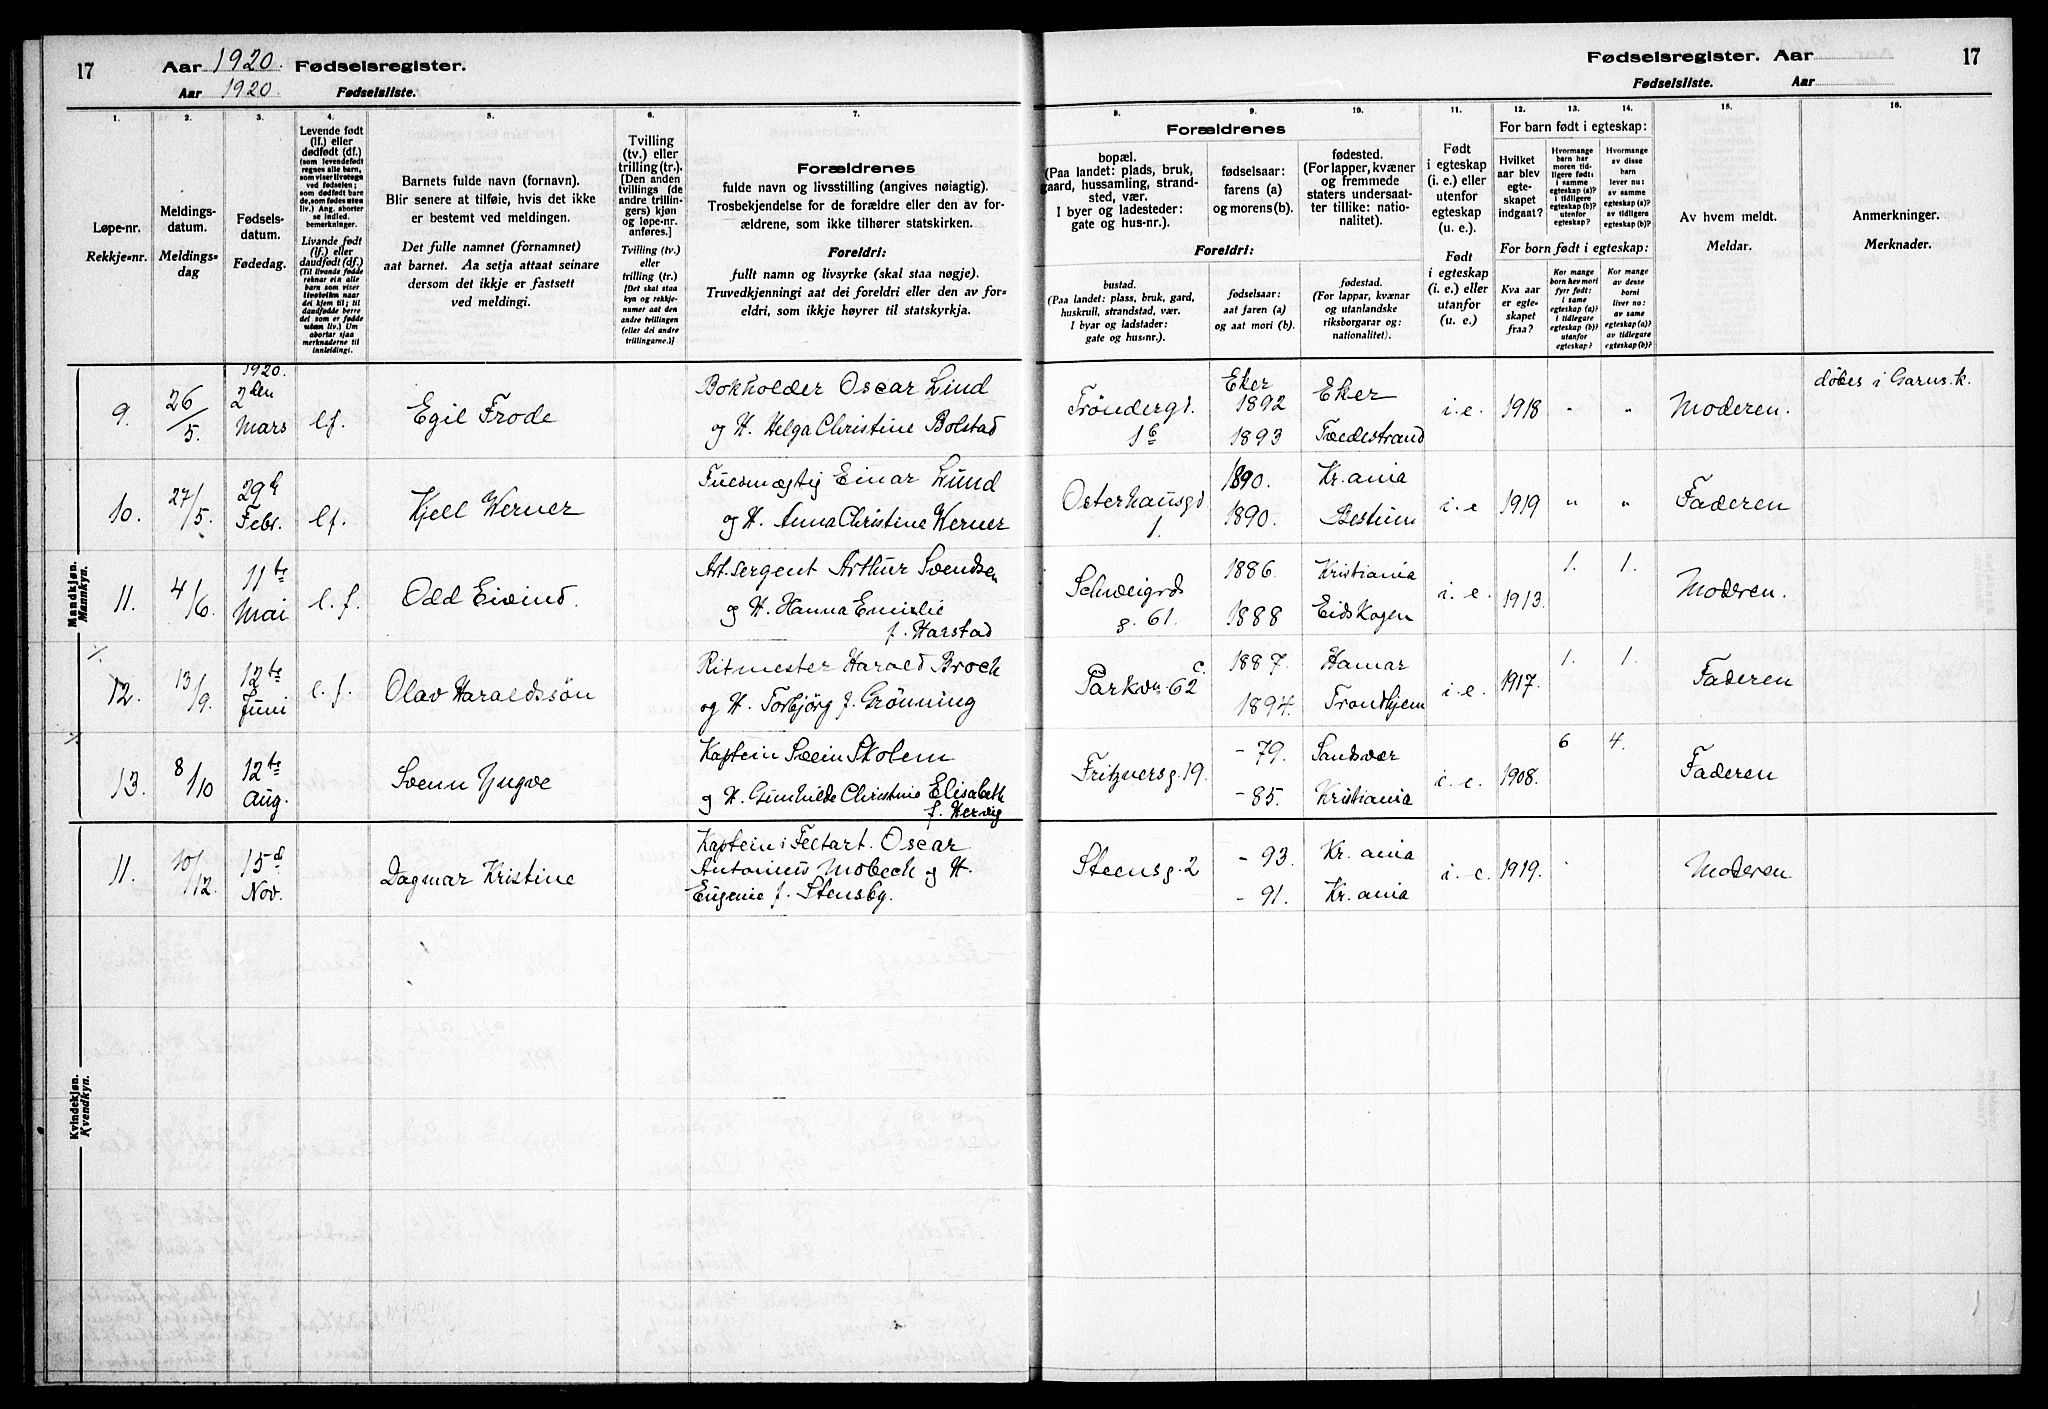 17
Aar 1920. Fødselsregister.
Aar 1920. Fødselsliste.
1.
2.
3.
4.
5.
6.
7.
Løpe-nr.
Rekkje-nr.
Meldings-
datum.
Meldings-
dag
Fødsels-
datum.
Fødedag.
Levende født
(lf.) eller
dødfødt (df.)
(som levendefødt
regnes alle barn,
som viser livstegn
ved fødselen;
som dødfødt bare
de, som fødes uten
liv.) Ang. aborter
se indled.
bemerkninger.
Livande født
(lf.) eller
daudfødt (df.)
(Til livande fødde
reknar ein alle
barn som viser
livsteikn naar
dei kjem til; til
daudfødde berre
dei som er fødde
utan liv.) Um
abortar sjaa
merknaderne til
innleidingi.
Barnets fulde navn (fornavn).
Blir senere at tilføie, hvis det ikke
er bestemt ved meldingen.
Det fulle namnet (fornamnet)
aat barnet. Aa setja attaat seinare
dersom det ikkje er fastsett
ved meldingi.
Tvilling
(tv.) eller
trilling (tr.).
[Den anden
tvillings (de
andre trillin-
gers) kjøn
og løpe-nr.
anføres.]
Tvilling (tv.)
eller
trilling (tr.)
[Det skal staa
kyn og rekkje-
numer aat den
andre tvillingen
(eller dei andre
trillingarne.)]
Forældrenes
fulde navn og livsstilling (angives nøiagtig).
Trosbekjendelse for de forældre eller den av for-
ældrene, som ikke tilhører statskirken.
Foreldri:
fullt namn og livsyrke (skal staa nøgje).
Truvedkjenningi aat dei foreldri eller den av for-
eldri, som ikkje høyrer til statskyrkja.
Mandkjøn.
Mannkyn.
9.
26/5.
1920.
2den
Mars
lf.
Egil Frode
Bokholder Oscar Lind
og H. Helga Christine Bolstad
10.
27/5.
29d
Febr.
lf.
Kjell Werner
Fuldmægtig Einar Lund
og H. Anna Christine Werner
11.
4/6.
11te
Mai
l. f.
Odd Eivind.
Art. sergent Arthur Svendsen
og H. Hanna Emilie
f. Harstad
12.
13/9.
12te
Juni
l. f.
Olav Haraldssøn
Ritmester Harald Broch
og H. Torbjørg f. Grønning
13.
8/10
12te
Aug.
Svenn Yngve
Kaptein Svein Skolem
og H. Gunhilde Christine Elisabeth
f. Hervig
Kvindekjøn.
Kvendkyn.
11.
10/12.
15d
Nov.
Dagmar Kristine
Kaptein i Feltart. Oscar
Antonius Mobech og H.
Eugenie f. Stensby.
Fødselsregister. Aar
17
Fødselsliste. Aar
8.
9.
10.
11.
12.
13.
14.
15.
16.
Forældrenes
bopæl.
(Paa landet: plads, bruk,
gaard, hussamling, strand-
sted, vær.
I byer og ladesteder:
gate og hus-nr.).
fødselsaar:
farens (a)
og morens (b).
fødested.
(For lapper, kvæner
og fremmede
staters undersaat-
ter tillike: natio-
nalitet).
Foreldri:
bustad.
(Paa landet: plass, bruk, gard,
huskrull, strandstad, vær.
I byar og ladstader:
gate og hus-nr.).
fødselsaar:
aat faren (a)
og aat mori (b).
fødestad.
(For lappar, kvænar
og utanlandske
riksborgarar og:
nationalitet).
Født
i egteskap
(i. e.) eller
utenfor
egteskap
(u. e.).
Født
i egteskap
(i. e.) eller
utanfor
(u. e.).
For barn født i egteskap:
Hvilket
aar blev
egte-
skapet
indgaat?
Hvormange
barn har
moren tid-
ligere født:
i samme
egteskap (a)?
i tidligere
egteskap (b)?
utenfor
egteskap?
Hvormange
av disse
barn
lever nu:
av samme
egteskap (a)?
av tidligere
egteskap (b)?
For born født i egteskap:
Kva aar
er egte-
skapet
fraa?
Kor mange
born hev mori
fyrr født:
i same
egteskap (a)?
i tidlegare
egteskap (b)?
utanfor
egteskap?
Kor mange
av desse
borni
liver no:
av same
egteskap (a)?
av tidlegare
egteskap (b)?
Av hvem meldt.
Meldar.
Anmerkninger.
Merknader.
Trøndergd.
16
Eker
1892
1893
Eker
Tvedestrand
i. e.
1918
"
"
Moderen.
døbes i Garns. k.
Osterhausgd
1.
1890.
1890.
Kr. ania
Bestum
i. e
1919
"
"
Faderen
Schweigrds
g. 61.
1886.
1888
Kristiania
Eidskogen
i. e.
1913.
1.
1.
Moderen.
Parkvn. 62 c.
1887.
1894.
Hamar
Trondhjem
i. e.
1917.
1.
1.
Faderen
Fritznersg. 19.
- 79.
- 85.
Sandsvær
Kristiania
i. e.
1908.
6
4.
Faderen
Steensg. 2
- 93.
- 91.
Kr. ania
Kr. ania
i. e.
1919.
Moderen